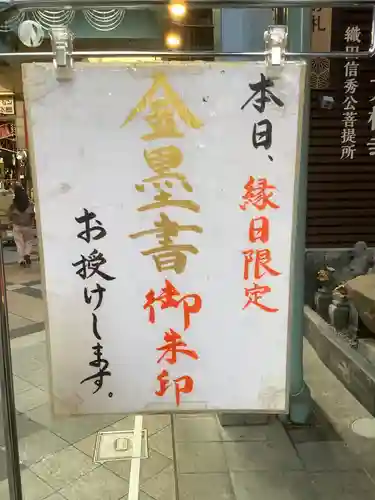 本日、
縁日限定
金墨書
御朱印
お授けします。
織田信秀公菩提所